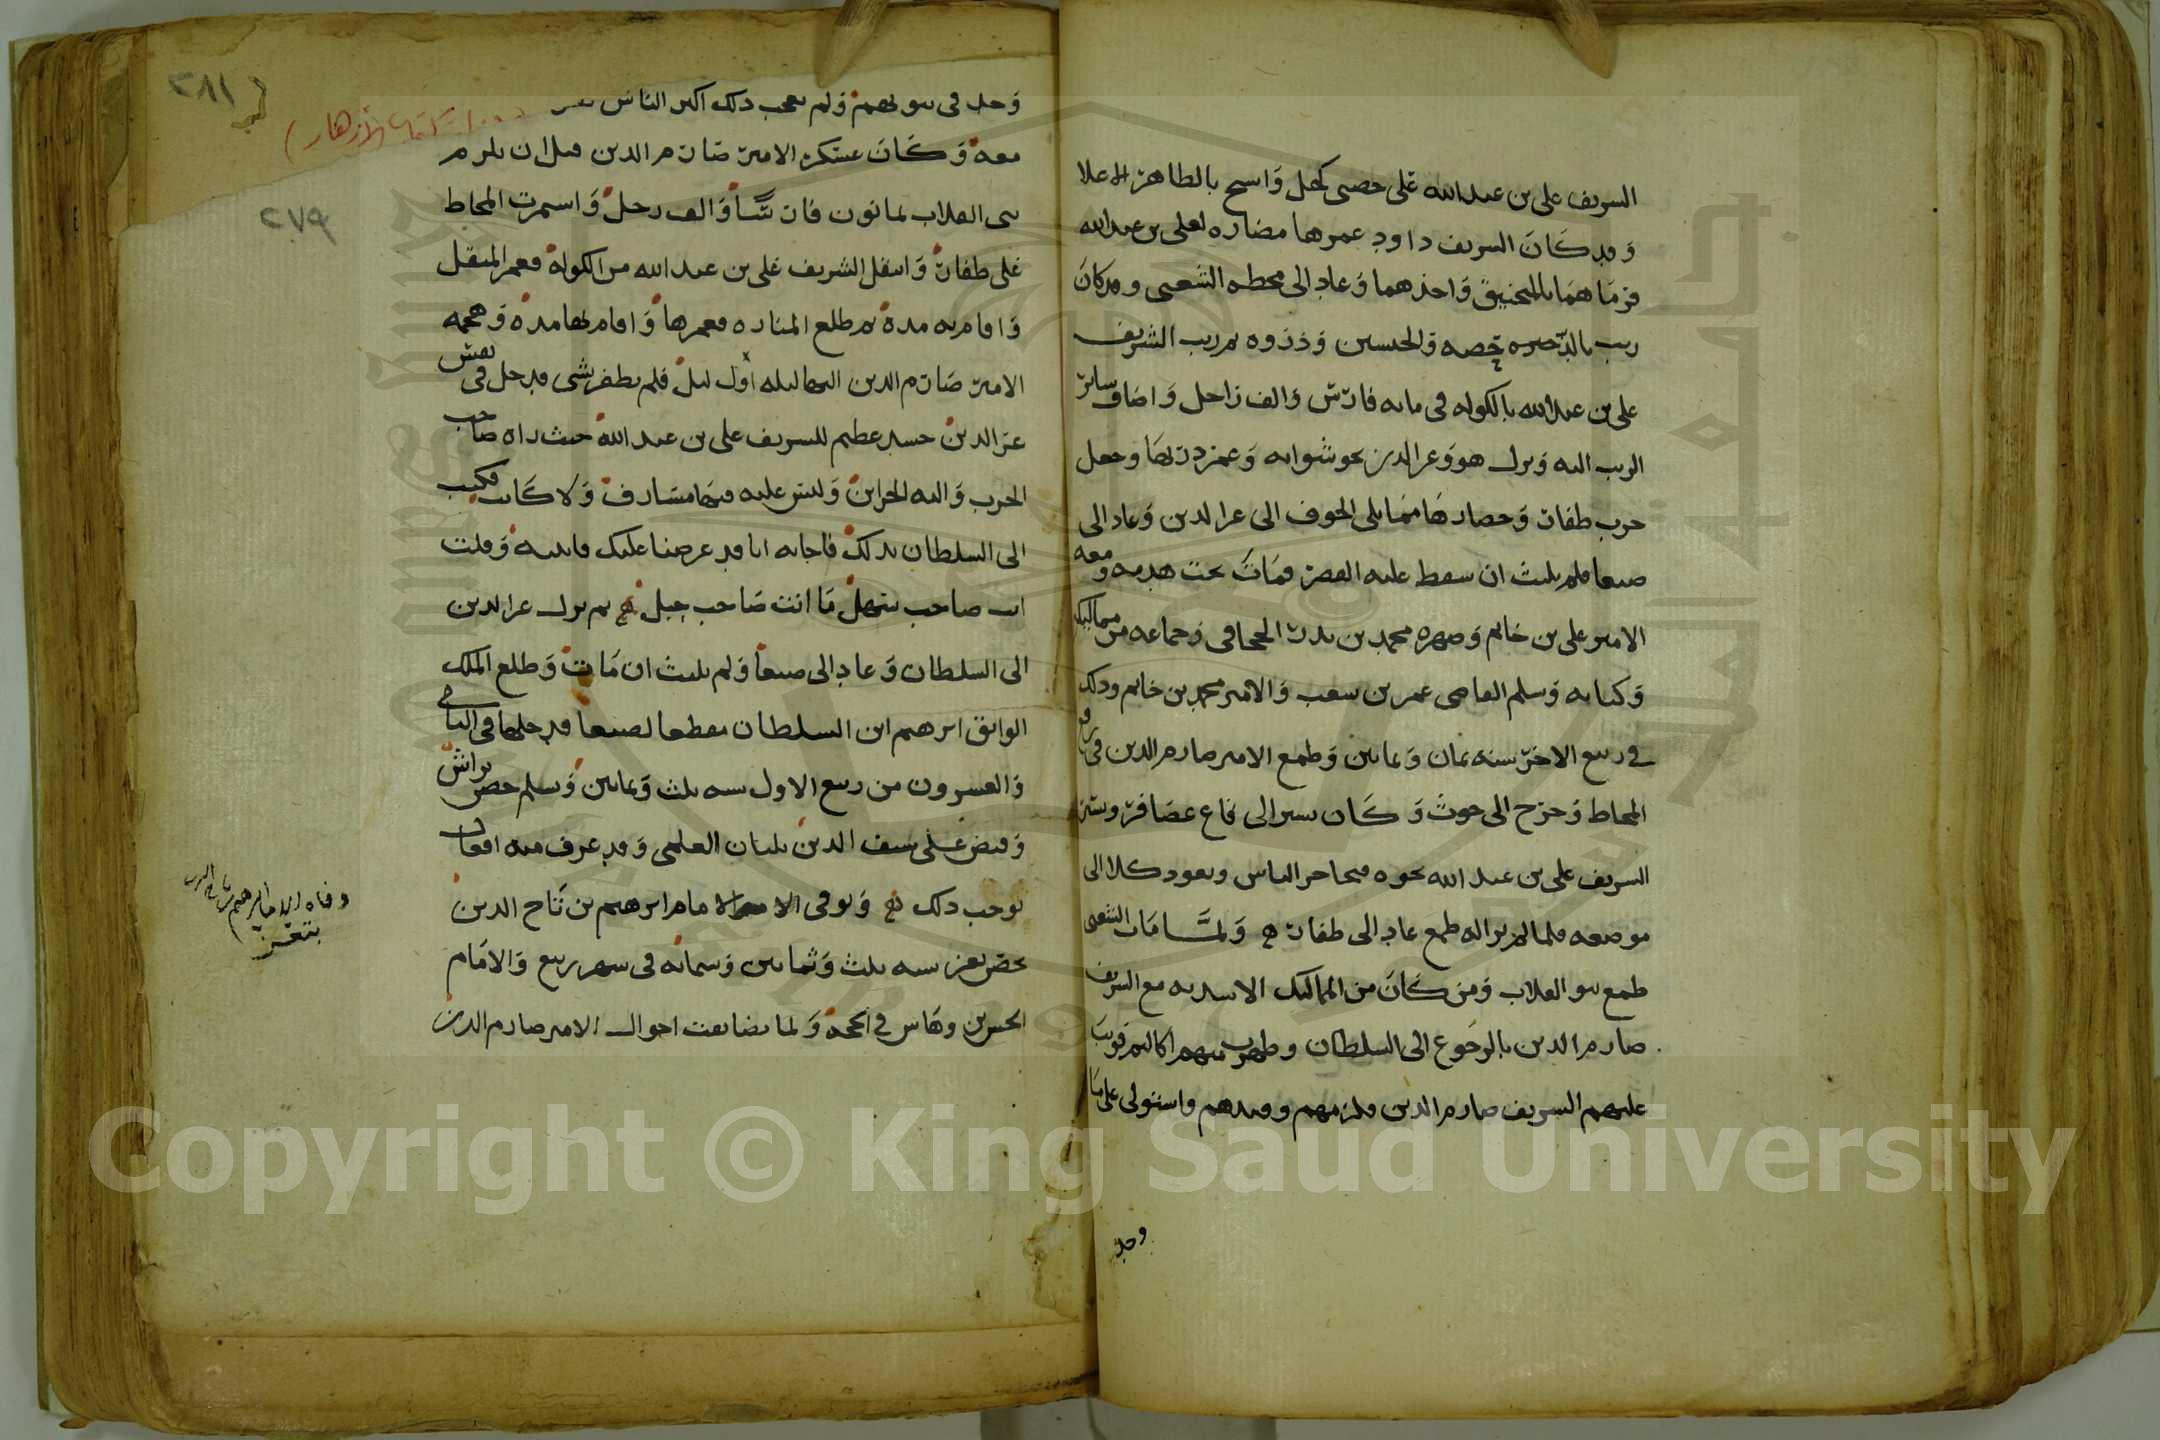 الشريف علي بن عبدالله على حصني كحل واسيح بالظاهر الاعلا
وقد كان الشريف داود عمرهما مضاره لعلي بن عبدالله
فرماهما بالمنجنيق واخذهما وعاد الى محطه الشعبي وقد كان
رتب حصه والحسين وذروه ثم رتب الشريف
علي بن عبدالله بالكوله في مايه فارس والف راجل واضاف ساير
الرتب اليه ونزل هو وعز الدين نحو شوابه وعمر وجعل
حرب ظفار وحصارها مما يلي الجوف الى عز الدين وعاد الى
صنعا فلم يلبث ان سقط عليه القصر فمات تحت هدمه ومعه
الامير علي بن حاتم وصهره محمد بن بدر الجحافي وجماعه من مماليكه
وكتابه وسلم القاضي عمر بن سعيد والامير محمد بن حاتم وذلك
في ربيع الاخر سنه ثمان وثمانين وطمع الامير صارم الدين في رفع
المحاط وخرج الى حوث وكان يسير الى قاع عصافر ويسير
الشريف علي بن عبدالله نحوه فيحاجر الناس ويعود كلا الى
موضعه فلما لم ير اله طمع عاد الى ظفار ولما مات الشعبي
طمع بنو القلاب ومن كان من المماليك الاسديه مع الشريف
صارم الدين بالرجوع الى السلطان وظهرت منهم فوثب
عليهم الشريف صارم الدين فلزمهم وقيدهم واستولى على ما
وجد
وجد في بيوتهم ولم يعجب ذلك اكثر الناس
معه وكان عسكر الامير صارم الدين قبل ان يلزم
بني القلاب ثمانون فارسا والف رجل واستمرت المحاط
على ظفار وانتقل الشريف علي بن عبدالله من الكوله فعمر المنقل
واقام به مدة ثم طلع المناره فعمرها واقام بها مدة وهجمه
الامير صارم الدين اليها ليله اول ليل فلم يظفر بشي فدخل في نفس
عز الدين حسد عظيم للشريف علي بن عبدالله حيث راه صاحب
الحرب واليه الخزاين وليس عليه فيها مشارف ولا كاتب فكتب
الى السلطان بذلك فاجابه انا قد عرضنا عليك فابيت وقلت
انت صاحب سهل ما انت صاحب جبل ثم نزل عز الدين
الى السلطان وعاد الى صنعا ولم يلبث ان مات وطلع الملك
الواثق ابرهيم ابن السلطان مقطعا لصنعا فدخلها في الثاني
والعشرون من ربيع الاول سنه ثلث وثمانين وتسلم حصن براش
وقبض على سيف الدين بلبان العلمي وقد عرف منه افعال
توجب ذلك وتوفي الامام ابرهيم بن تاج الدين
بحصن تعز سنه ثلث وثمانين وستمائه في شهر ربيع والامام
الحسن بن وهاس في الحجه ولما تضايقت احوال الامير صارم الدين
وفاه الامام ابرهيم بن تاج الدين
بتعز
٢٨١
٢٧٩
Copyright © King Saud University